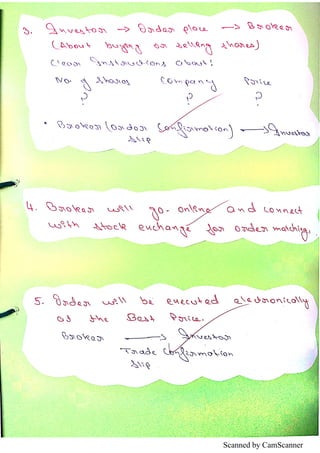 3. Investor → Order place → Broker
(About buying or selling shares)
Clear Instructions about:
No of shares Company Price
? ? ?
• Broker (order Confirmation) → Investor
slip
4. Broker will go. online and connect
with stock exchange for order matching.
5. Order will be executed electronically
at the Best Price.
Broker → Investor
Trade Confirmation
slip
Scanned by CamScanner